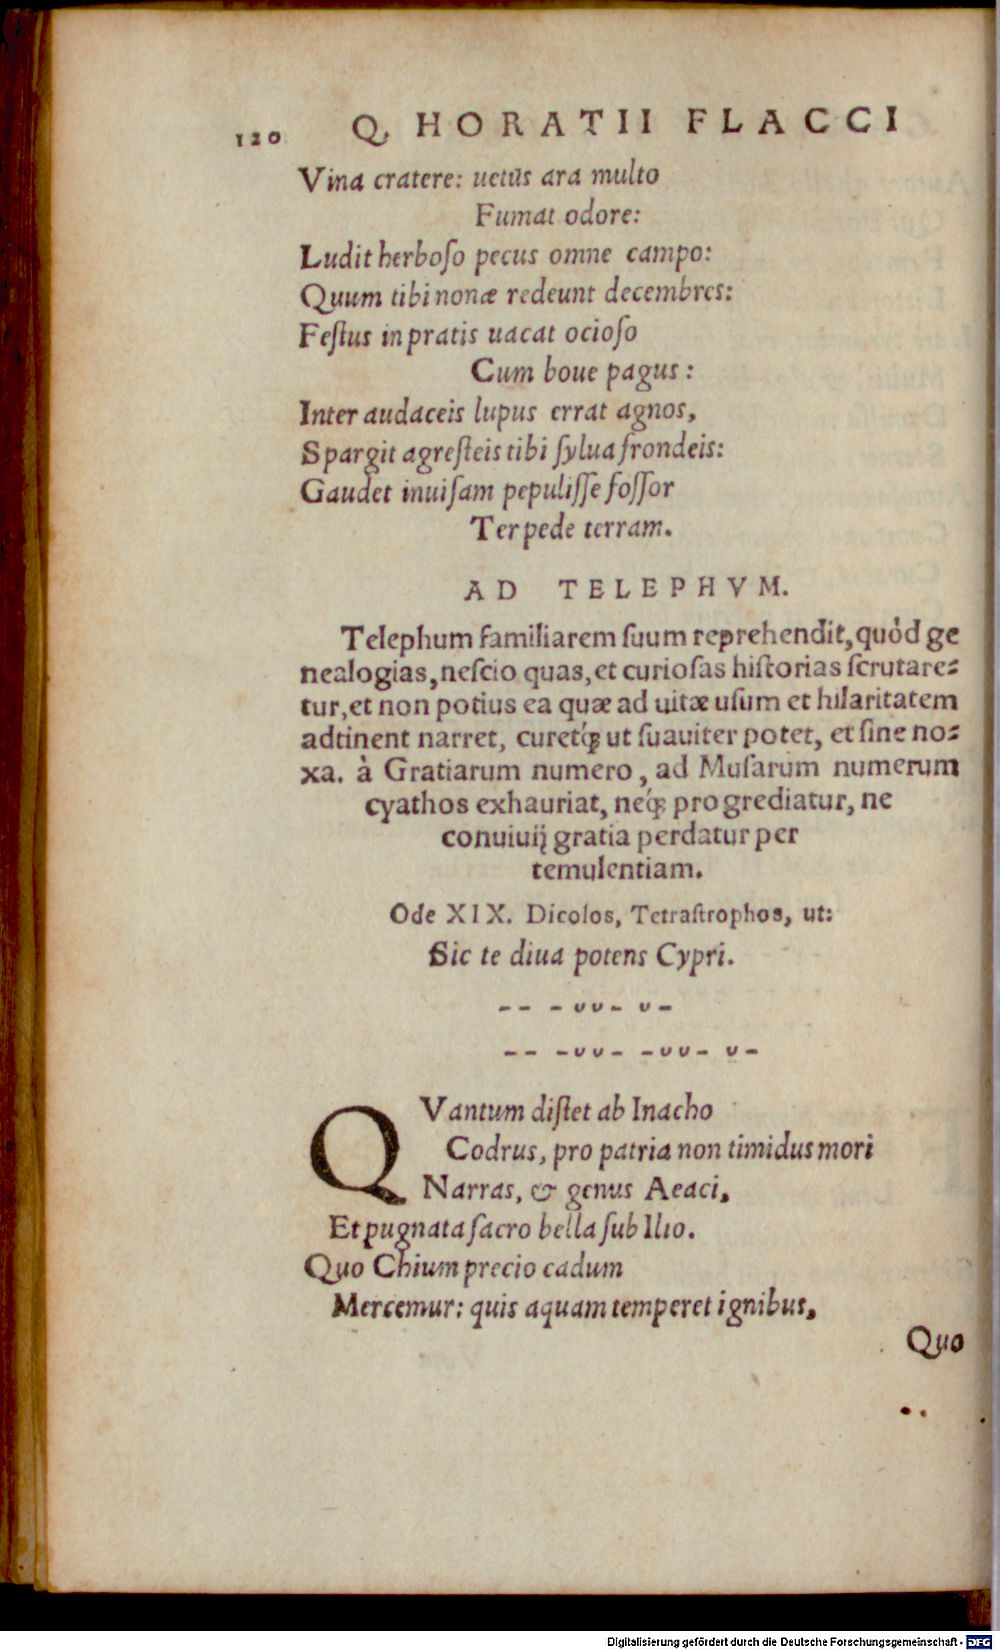 120 Q. HORATII FLACCI
Vina cratere: uetus ara multo
Fumat odore:
Ludit herboſo pecus omne campo:
Quum tibi nonæ redeunt decembres:
Feſtus in pratis uacat ocioſo
Cum boue pagus:
Inter audaceis lupus errat agnos,
Spargit agreſteis tibi ſylua frondeis:
Gaudet inuiſam pepuliſſe foſſor
Ter pede terram.
AD TELEPHVM.
Telephum familiarem ſuum reprehendit, quòd ge
nealogias, neſcio quas, et curioſas hiſtorias ſcrutare⸗
tur, et non potius ea quæ ad uitæ uſum et hilaritatem
adtinent narret, curetq́; ut ſuauiter potet, et ſine no⸗
xa. à Gratiarum numero, ad Muſarum numerum
cyathos exhauriat, neq́; progrediatur, ne
conuiuij gratia perdatur per
temulentiam.
Ode XIX. Dicolos, Tetraſtrophos, ut:
Sic te diua potens Cypri.
– – – υυ – υ –
– – – υυ – – υυ – υ –
QVantum diſtet ab Inacho
Codrus, pro patria non timidus mori
Narras, & genus Aeaci,
Et pugnata ſacro bella ſub Ilio.
Quo Chium precio cadum
Mercemur: quis aquam temperet ignibus,
Quo
Digitalisierung gefördert durch die Deutsche Forschungsgemeinschaft - DFG